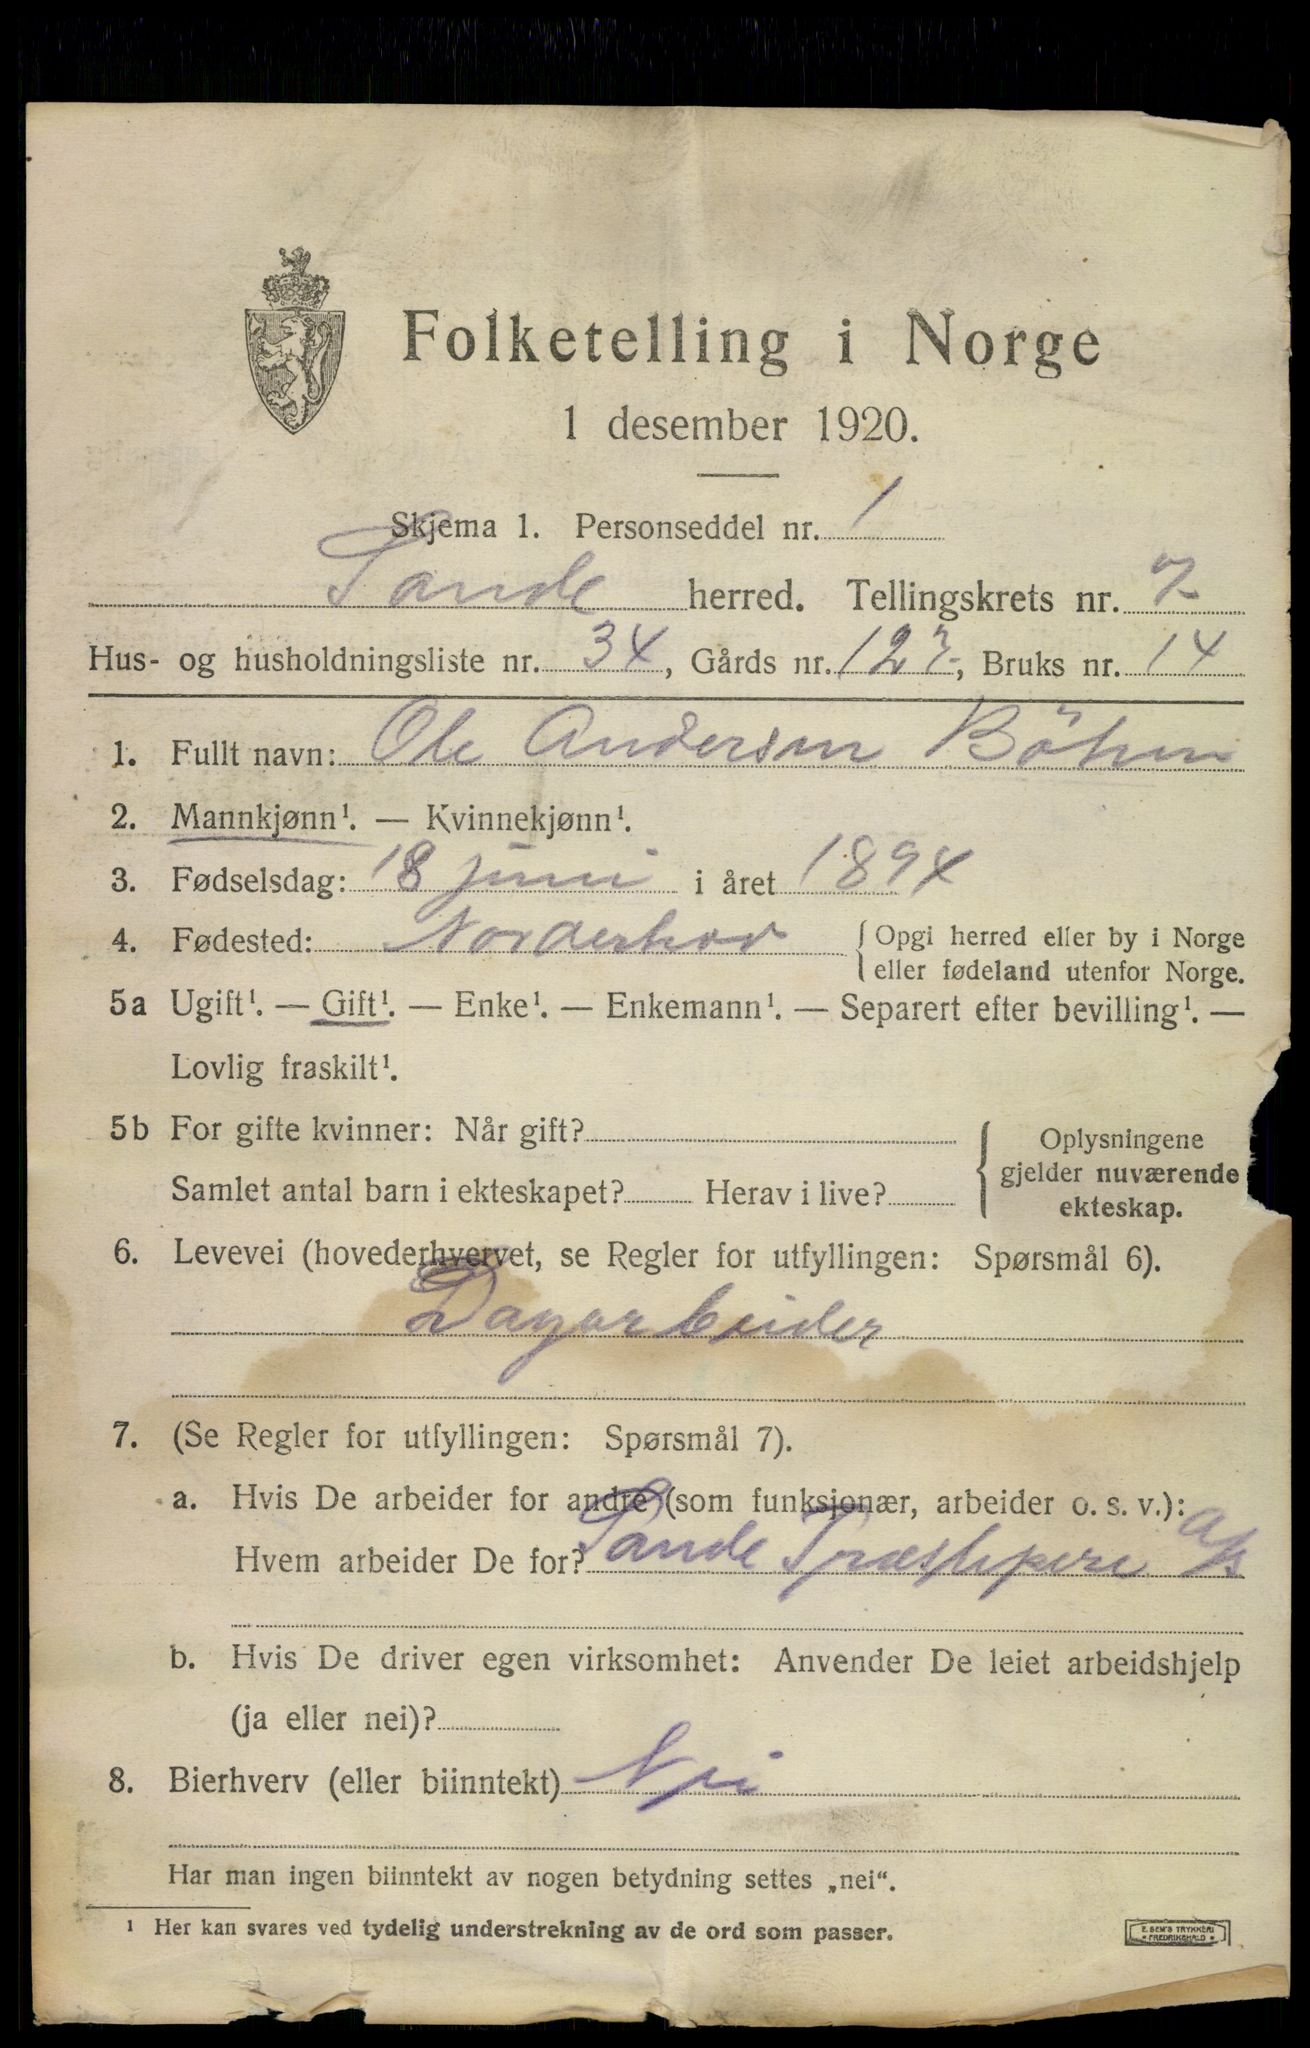 Folketelling i Norge
1 desember 1920.
Skjema 1. Personseddel nr. 1
Sande herred. Tellingskrets nr. 7
Hus- og husholdningsliste nr. 34, Gårds nr. 127, Bruks nr. 14
1. Fullt navn: Ole Andersen Böhm
2. Mannkjønn¹. — Kvinnekjønn¹.
3. Fødselsdag: 18 juni i året 1894
4. Fødested: Norderhov { Opgi herred eller by i Norge
eller fødeland utenfor Norge.
5a Ugift¹. — Gift¹. — Enke¹. — Enkemann¹. — Separert efter bevilling¹. —
Lovlig fraskilt¹.
5b For gifte kvinner: Når gift?
Samlet antal barn i ekteskapet? Herav i live?
{ Oplysningene
gjelder nuværende
ekteskap.
6. Levevei (hovederhvervet, se Regler for utfyllingen: Spørsmål 6).
Dagarbeider
7. (Se Regler for utfyllingen: Spørsmål 7).
a. Hvis De arbeider for andre (som funksjonær, arbeider o. s. v.):
Hvem arbeider De for? Sande Træsliperi A/S
b. Hvis De driver egen virksomhet: Anvender De leiet arbeidshjelp
(ja eller nei)?
8. Bierhverv (eller biinntekt) Nei
Har man ingen biinntekt av nogen betydning settes „nei“.
¹ Her kan svares ved tydelig understrekning av de ord som passer.
E. SEM'S TRYKKERI
• FREDRIKSHALD •